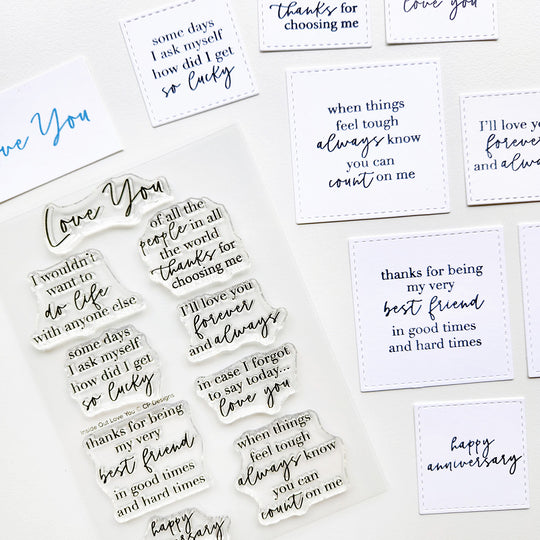 some days
I ask myself
how did I get
so lucky
thanks for
choosing me
love you
Love You
when things
feel tough
always know
you can
count on me
I'll love you
forever
and always
thanks for being
my very
best friend
in good times
and hard times
happy
anniversary
Love You
of all the
people in all
the world
thanks for
choosing me
I wouldn't
want to
do life
with anyone else
I'll love you
forever
and always
some days
I ask myself
how did I get
so lucky
in case I forgot
to say today...
love you
Inside Out Love You © CP Designs
thanks for being
my very
best friend
in good times
and hard times
when things
feel tough
always know
you can
count on me
happy
anniversary